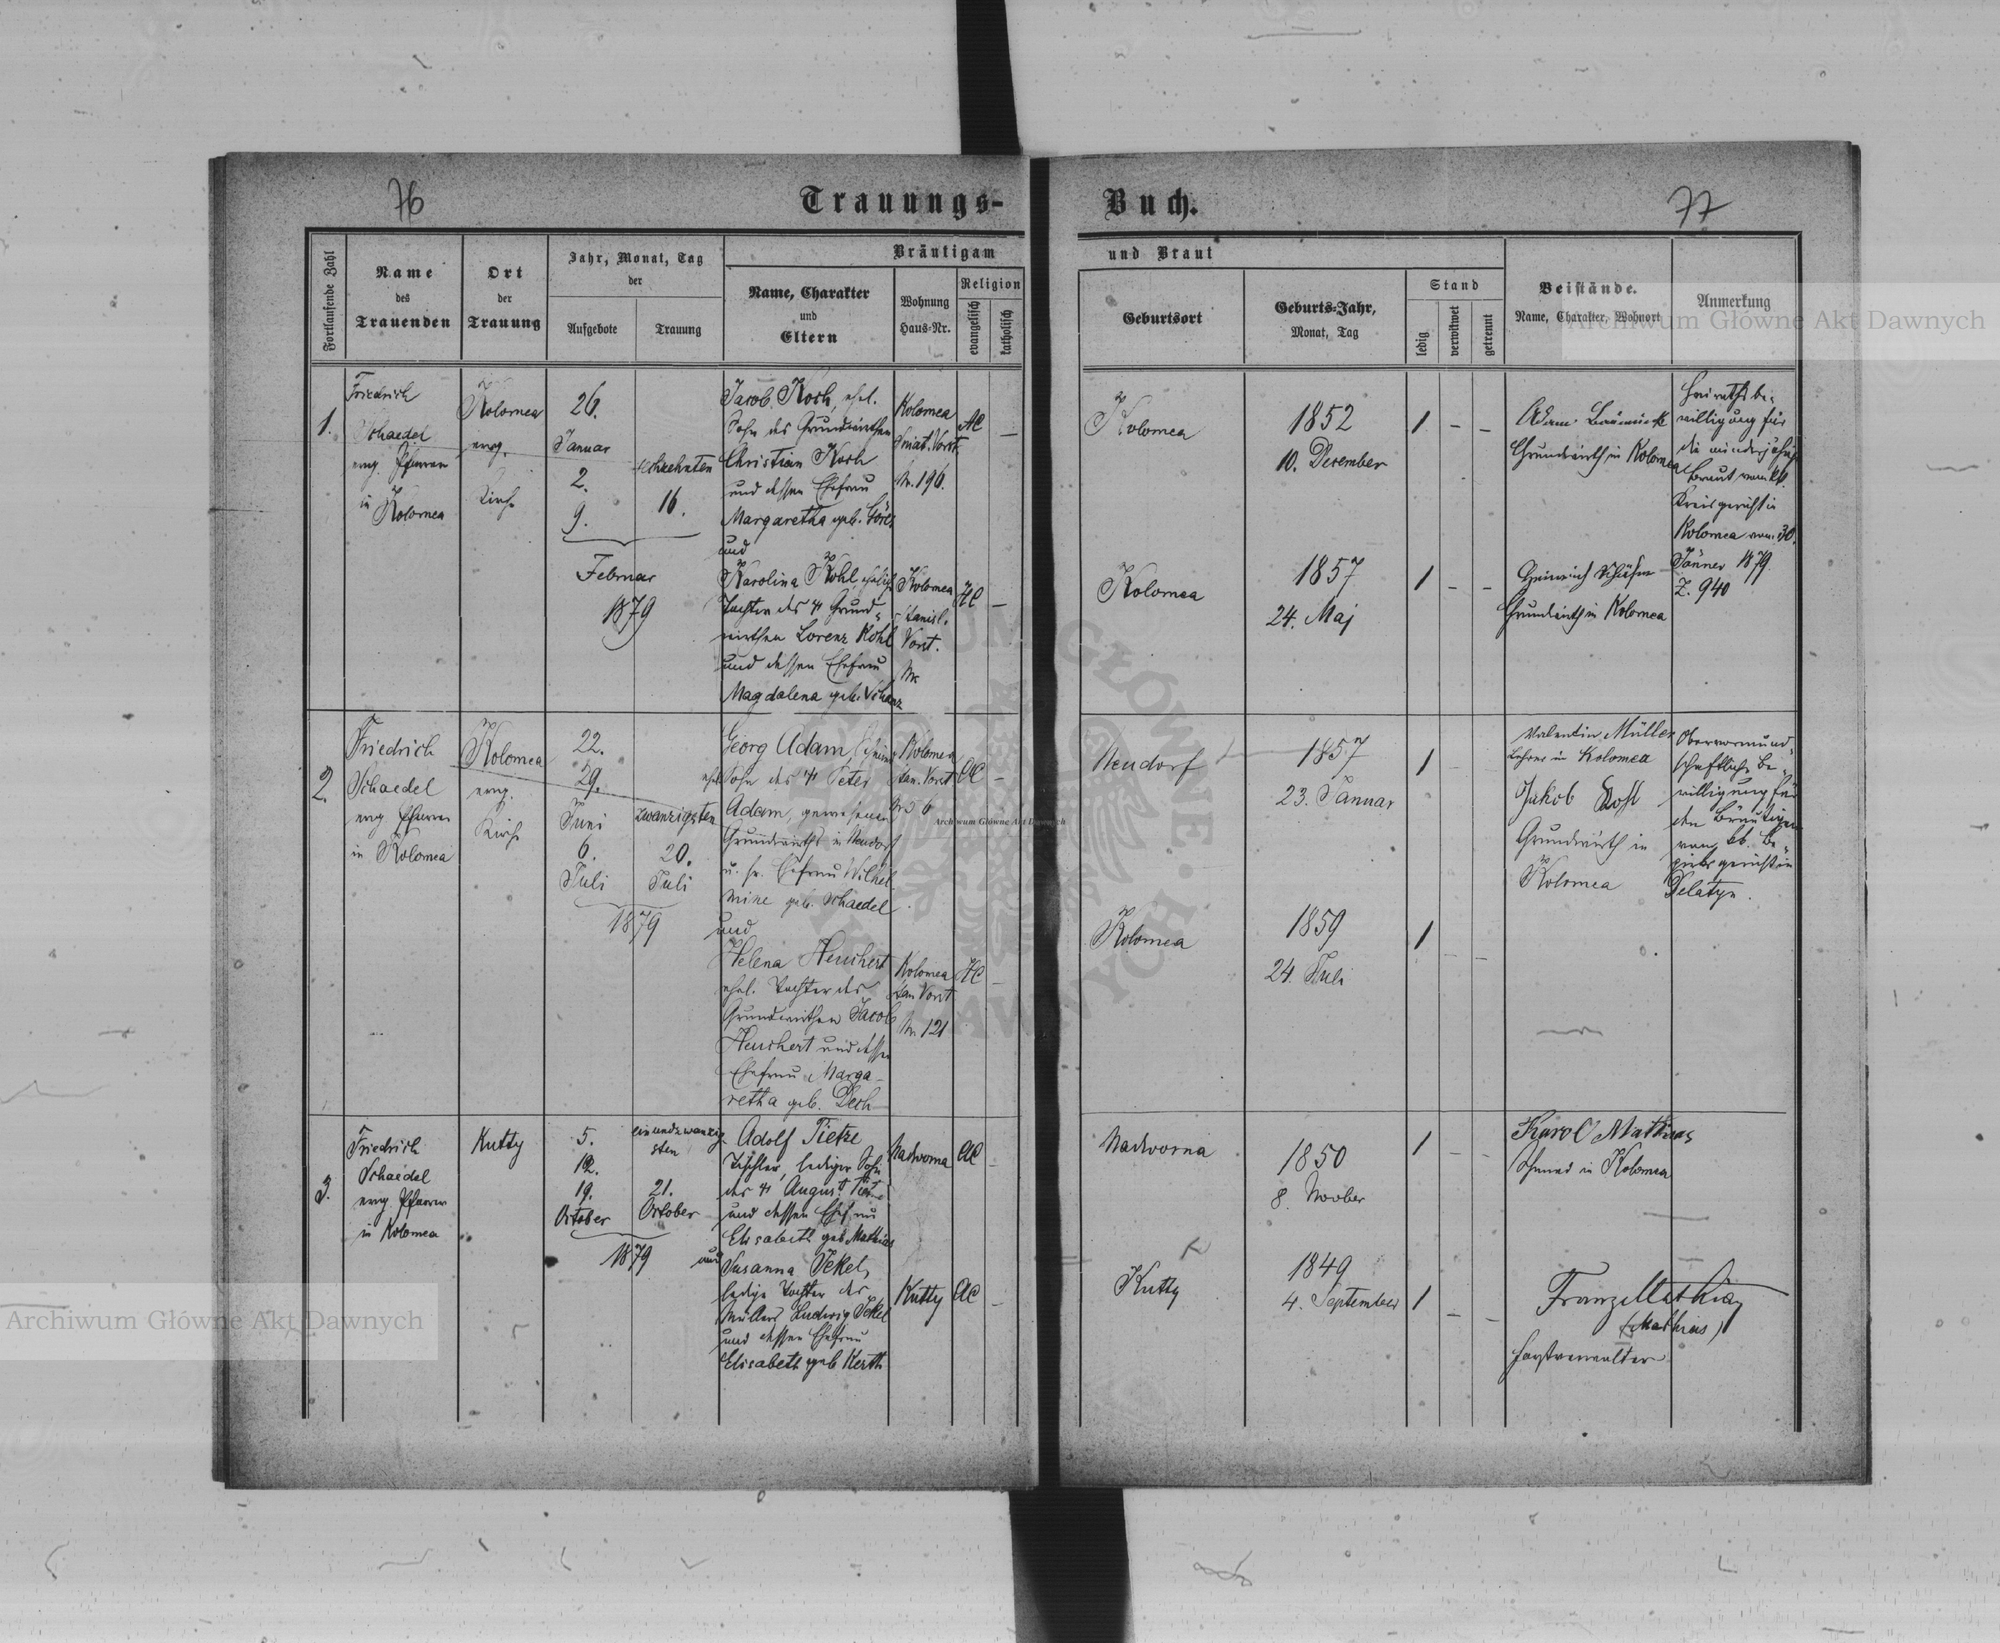 76
Trauungs-
Fortlaufende Zahl
Name
des
Trauenden
Ort
der
Trauung
Jahr, Monat, Tag
der
Aufgebote
Trauung
Bräutigam
Name, Charakter
und
Eltern
Wohnung
Haus-Nr.
Religion
evangelisch
katholisch
1.
Friedrich
Schaedel
evng. Pfarrer
in
Kolomea
Kolomea
evng.
Kirche
26.
Januar
2.
9.
Februar
1879
sechzehnten
16.
Jacob Koch, ehel.
Sohn des Grundwirthen
Christian Koch
und dessen Ehefrau
Margaretha geb.
und
Karolina Kohl eheliche
Tochter des Grund-
wirthen Lorenz Kohl
und dessen Ehefrau
Magdalena geb.
Kolomea
Sniat. Vorst.
Nr. 196.
AC
–
Kolomea
Stanisl.
Vorst.
Nr.
HC
–
2.
Friedrich
Schaedel
evng Pfarrer
in Kolomea
Kolomea
evng.
Kirche
22.
29.
Juni
6.
Juli
1879
zwanzigsten
20.
Juli
Georg Adam,
ehel. Sohn des Peter
Adam, gewesenen
Grundwirths in Neudorf
u. sr. Ehefrau Wilhel
mine geb. Schaedel
und
Helena Heuchert
ehel. Tochter des
Grundwirthen Jacob
Heuchert und dessen
Ehefrau Marga-
retha geb. Desh
Kolomea
Stan. Vorst
Nr 56
AC
–
Kolomea
Stan Vorst
Nr. 121
HC
–
3.
Friedrich
Schaedel
evng Pfarrer
in Kolomea
Kutty
5.
12.
19.
October
1879
einundzwanzig-
sten
21.
October
Adolf Pietze
Tischler, lediger Sohn
des August
und dessen Ehefrau
Elisabeth geb Mathias
und Susanna Jekel,
ledige Tochter des
Müllers Ludwig Jekel
und dessen Ehefrau
Elisabeth geb Kerth
Nadworna
AC
–
Kutty
AC
–
77
Buch.
und Braut
Geburtsort
Geburts-Jahr,
Monat, Tag
Stand
ledig
verwitwet
getrennt
Beistände.
Name, Charakter, Wohnort
Anmerkung
Kolomea
1852
10. December
1 – –
Adam
Grundwirth in Kolomea
Heirathsbe-
willigung für
die minderjährige
Braut vom kk.
Kreisgericht in
Kolomea vom 30.
Jänner 1879.
Z. 940
Kolomea
1857
24. Maj
1 – –
Heinrich Schäfer
Grundwirth in Kolomea
Neudorf
1857
23. Januar
1 –
Valentin Müller
Lehrer in Kolomea
Jakob Kohl
Grundwirth in
Kolomea
Obervormund-
schaftliche Be-
willigung für
den Bräutigam
vom kk. Be-
zirksgericht in
Delatyn.
Kolomea
1859
24. Juli
1
– –
Nadworna
1850
8. November
1 – –
Karol Mathias
Schmied in Kolomea
Kutty
1849
4. September
1 – –
Franz Mathias
(Mathias)
Forstverwalter
Archiwum Główne Akt Dawnych
Archiwum Główne Akt Dawnych
Archiwum Główne Akt Dawnych